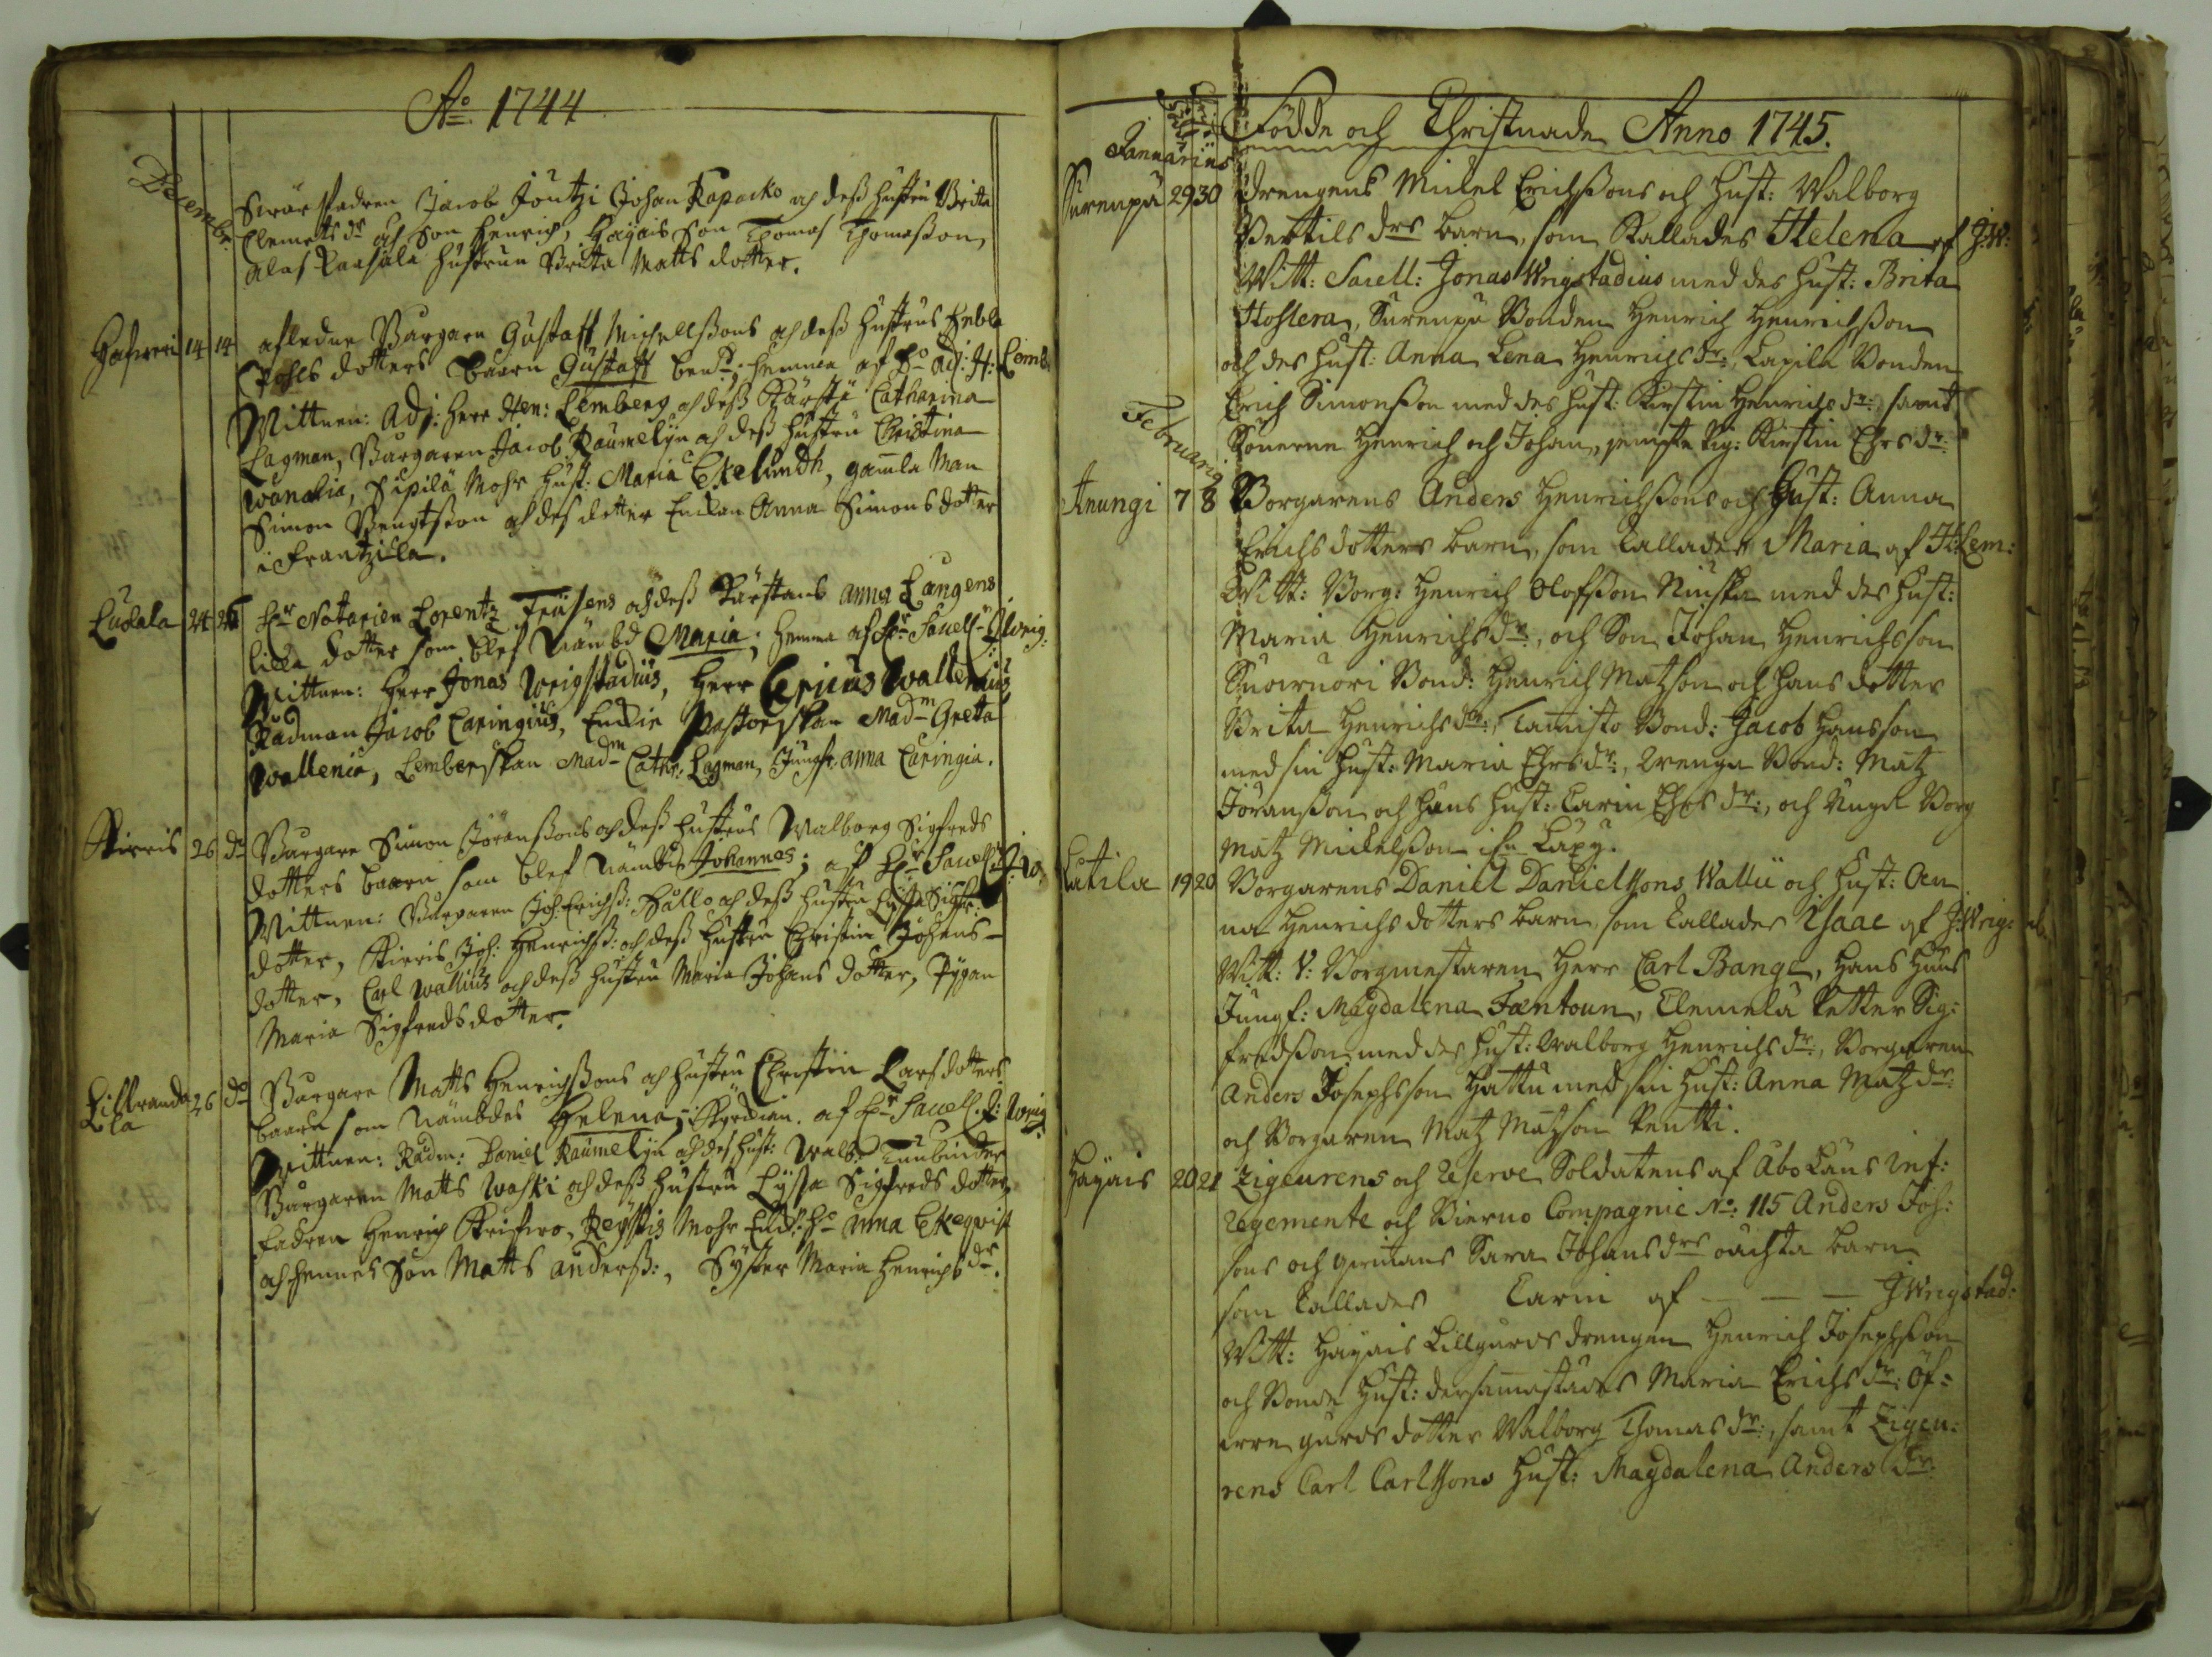 Ao. 1744
Decembr:
Swärfadren Jacob Joutzi Johan Kapacko och dess hustru Britta
Clemetsdr och Son Henrich, Hajais Son Thomas Thomasson,
hustrun Brita Matts dotter.
Hafweri 14 14 afledne Burgaren Gustaff Michellssons och dess hustrus Hebla
Pohls dotters baarn Gustaff hemma af Hr adj: H: Lemb:
Wittnen: Adj: Herr Hen: Lemberg och dess Kärsta Catharina
Lagman, Burgaren Jacob Raumelijn och dess hustru Christina
Wanalia, Sipilä Mohr hust: Maria Ekelundh, gamla Man
Simon Bengtsson och des dotter Enkan Anna Simons dotter
i Frantzila.
Ludala 24 26 Hr Notarien Lorentz Frusens och dess Kärstans Anna Langens
lilla dotter som blef Nämbd Maria; hemma af Hr Sacell: J: Wrig:
Wittnen: Herr Jonas Wrigstadius, Herr Ericus Wallenius
Rådman Jacob Caringius, Enckie Pastorskan Madm Greta
Wallenia, Lemberskan Madm Cathr: Lagman, Jungfr: Anna Caringia.
Kirris 26 do Burgare Simon Jöranssons och dess hustrus Walborg Sigfreds
dotters baarn som blef Nämbd Johannes; af Hr Sacell: J: W:
Wittnen: Burgaren Joh: Erichss: Hallo och dess hustru Lijsa Sigfr:
dotter, Kirris Joh: Henrichss: och dess hustru Christin Johans-
dotter, Carl Wallius och dess hustru Maria Johans dotter, Pigan
Maria Sigfredsdotter.
Lillranda
la 26 do Burgare Matts Henrichssons och hustru Christin Lars dotters
baarn som Nämbdes Helena; af Hr Sacell: J: Wrig
Wittnen: Rådm: Daniel Raumelijn och des hust: Walb:
Burgaren Matts Waski och dess hustru Lijsa Sigfreds dotter,
Fadren Henrich Krister, Mohr Anna Ekeqvist
och hennes Son Matts Anderss:, Syster Maria Henrichsdr.
Födde och Christnade Anno 1745.
Januarius
Surenpä 29 30 Drengens Mickel Erichssons och Hust: Walborg
Bertils drs barn, som Kallades Helena af J:W:
Witt: Sacell: Jonas Wrigstadius med des Hust: Brita
Hoslera, Surenpä Bonden Henrich Henrichsson
och des Hust: Anna Lena Henrichs dr: Lapila Bonden
Erich Simonsson med des Hust: Kirstin Henrichs dr: samt
Sönerne Henrich och Johan, jempte Pig: Kirstin Ehrs dr:
Februarius
Anungi 7 8 Borgarens Anders Henrichssons och Hust: Anna
Erichs dotters barn, som Kallades Maria af H: Lem:
Witt: Borg: Henrich Olofsson Niuska med des Hust:
Maria Henrichs dr, och Son Johan Henrichsson
Suoruori Bond: Henrich Matzson och hans dotter
Brita Henrichs dr:, Tamisto Bond: Jacob Hansson
med sin Hust: Maria Ehrs dr:, Wrenga Bond: Matz
Jöransson och hans Hust: Carin Ehrs dr:, och Ungk Borg
Matz Mickelsson ifr. Lapy.
Katila 19 20 Borgarens Daniel Danielssons Wallii och Hust: An
na Henrichs dotters barn som Kallades Isaac af J: Wrig:
Witt: V: Borgmestaren Herr Carl Bange, Hans Huus
Jungf: Magdalena Fæntoun, Clemelä Petter Sig:
fredsson med des Hust: Walborg Henrichs dr:, Borgaren
Anders Josephsson Hattu med sin Hust: Anna Matz dr:
och Borgaren Matz Matzson Pentti.
Hajais 20 21 Zigeurens och Reserve Soldatens af Abo Läns Inf:
Regemente och Wirmo Compagnie No: 115 Anders Joh:
sons och qwinans Sara Johans drs oächta barn
som Kallades Carin af — — — J Wrigstad:
Witt: Hajais Lillgårds drengen Henrich Josephsson
och Bonde Hust: dersammastädes Maria Erichs dr: Öf=
werre gårds dotter Walborg Thomas dr:, samt Zigeu:
rens Carl Carlssons Hust: Magdalena Anders dr: